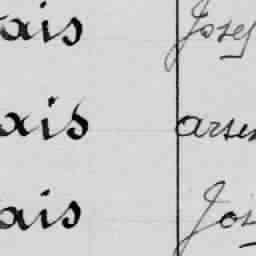 ais Jose
ais arse
ais Jos